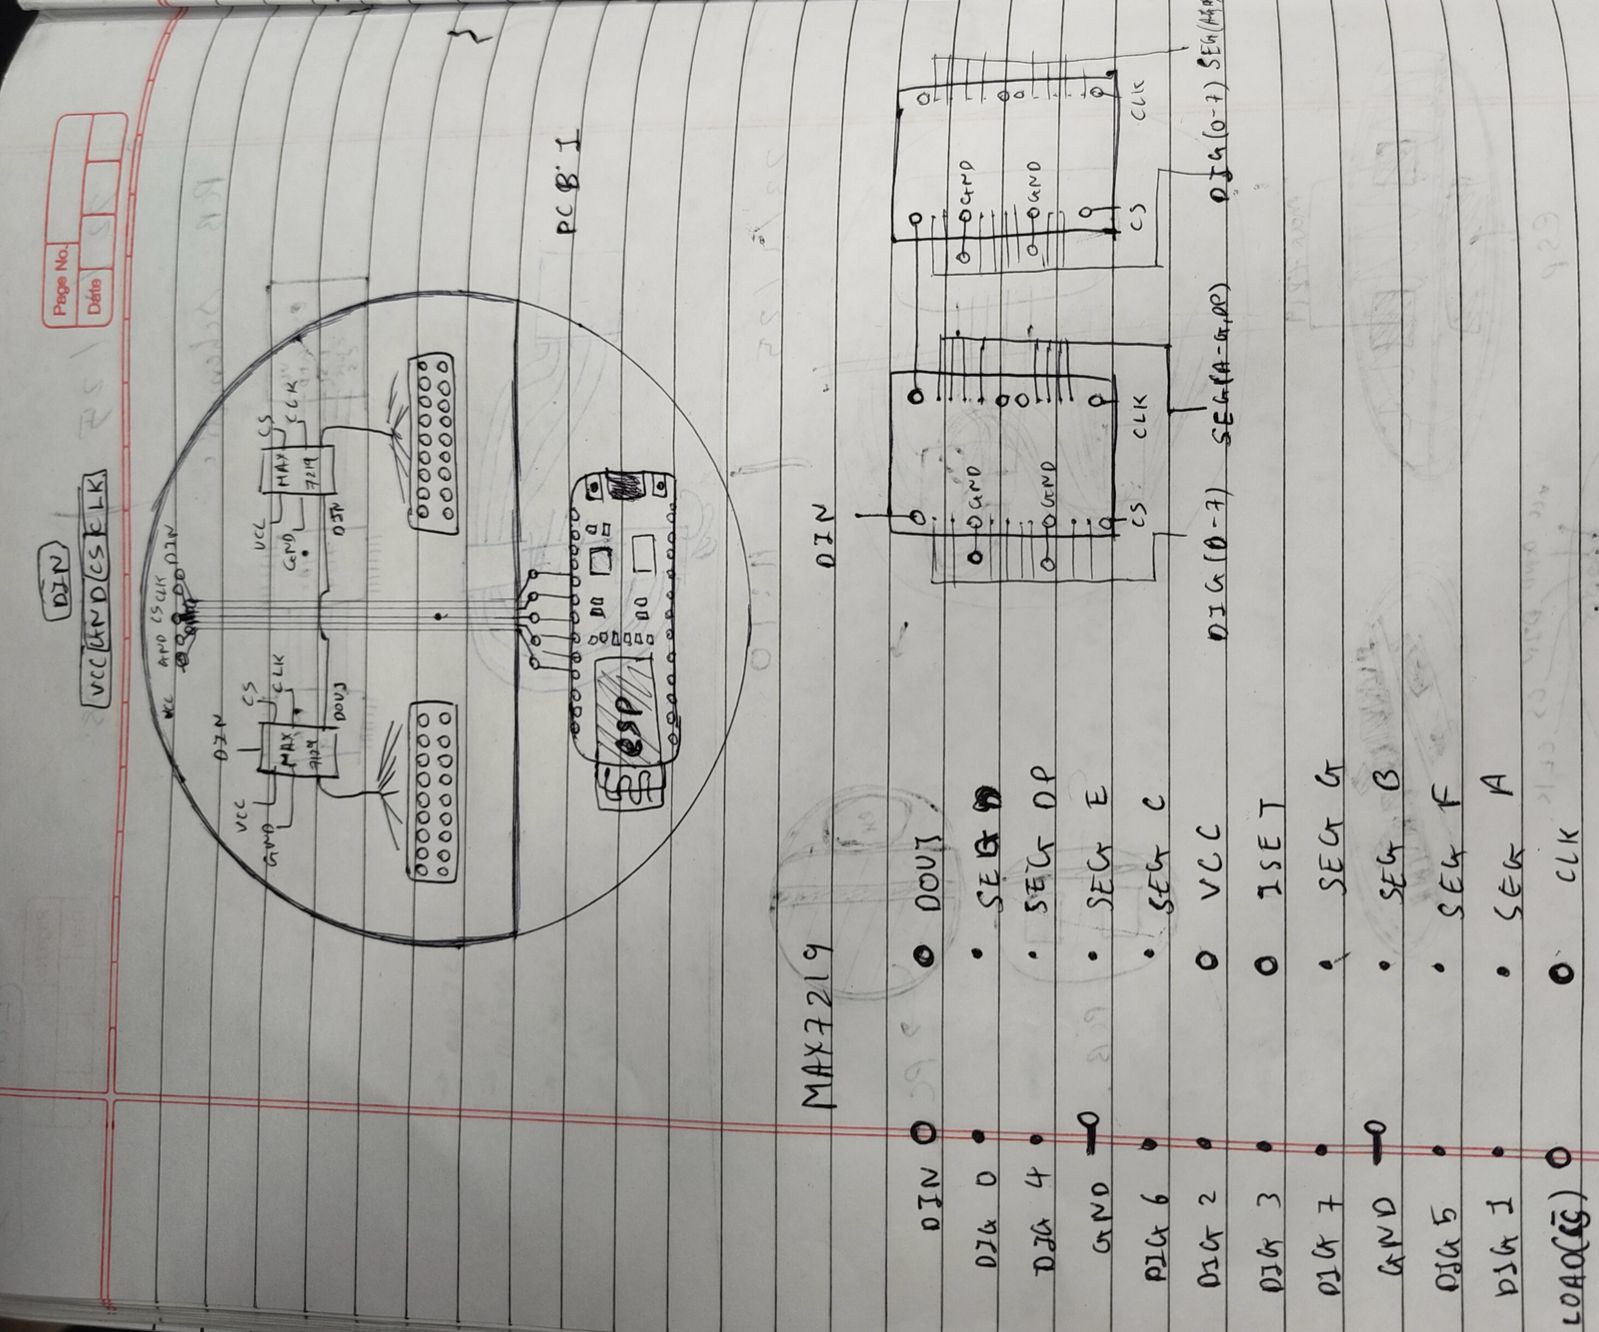 Page No.
Date
DIN
VCC GND CS CLK
VCC GND CS CLK DIN
DIN
CS
CLK
VCC
GND
MAX
7219
DOUT
CS
CLK
VCC
GND
MAX
7219
DIN
ESP
PCB 1
MAX7219
DIN DOUT
DIG 0 SEG D
DIG 4 SEG DP
GND SEG E
DIG 6 SEG C
DIG 2 VCC
DIG 3 ISET
DIG 7 SEG G
GND SEG B
DIG 5 SEG F
DIG 1 SEG A
LOAD(CS) CLK
DIN
GND
GND
CS
CLK
DIG(0-7) SEG(A-G,DP)
GND
GND
CS
CLK
DIG(0-7)